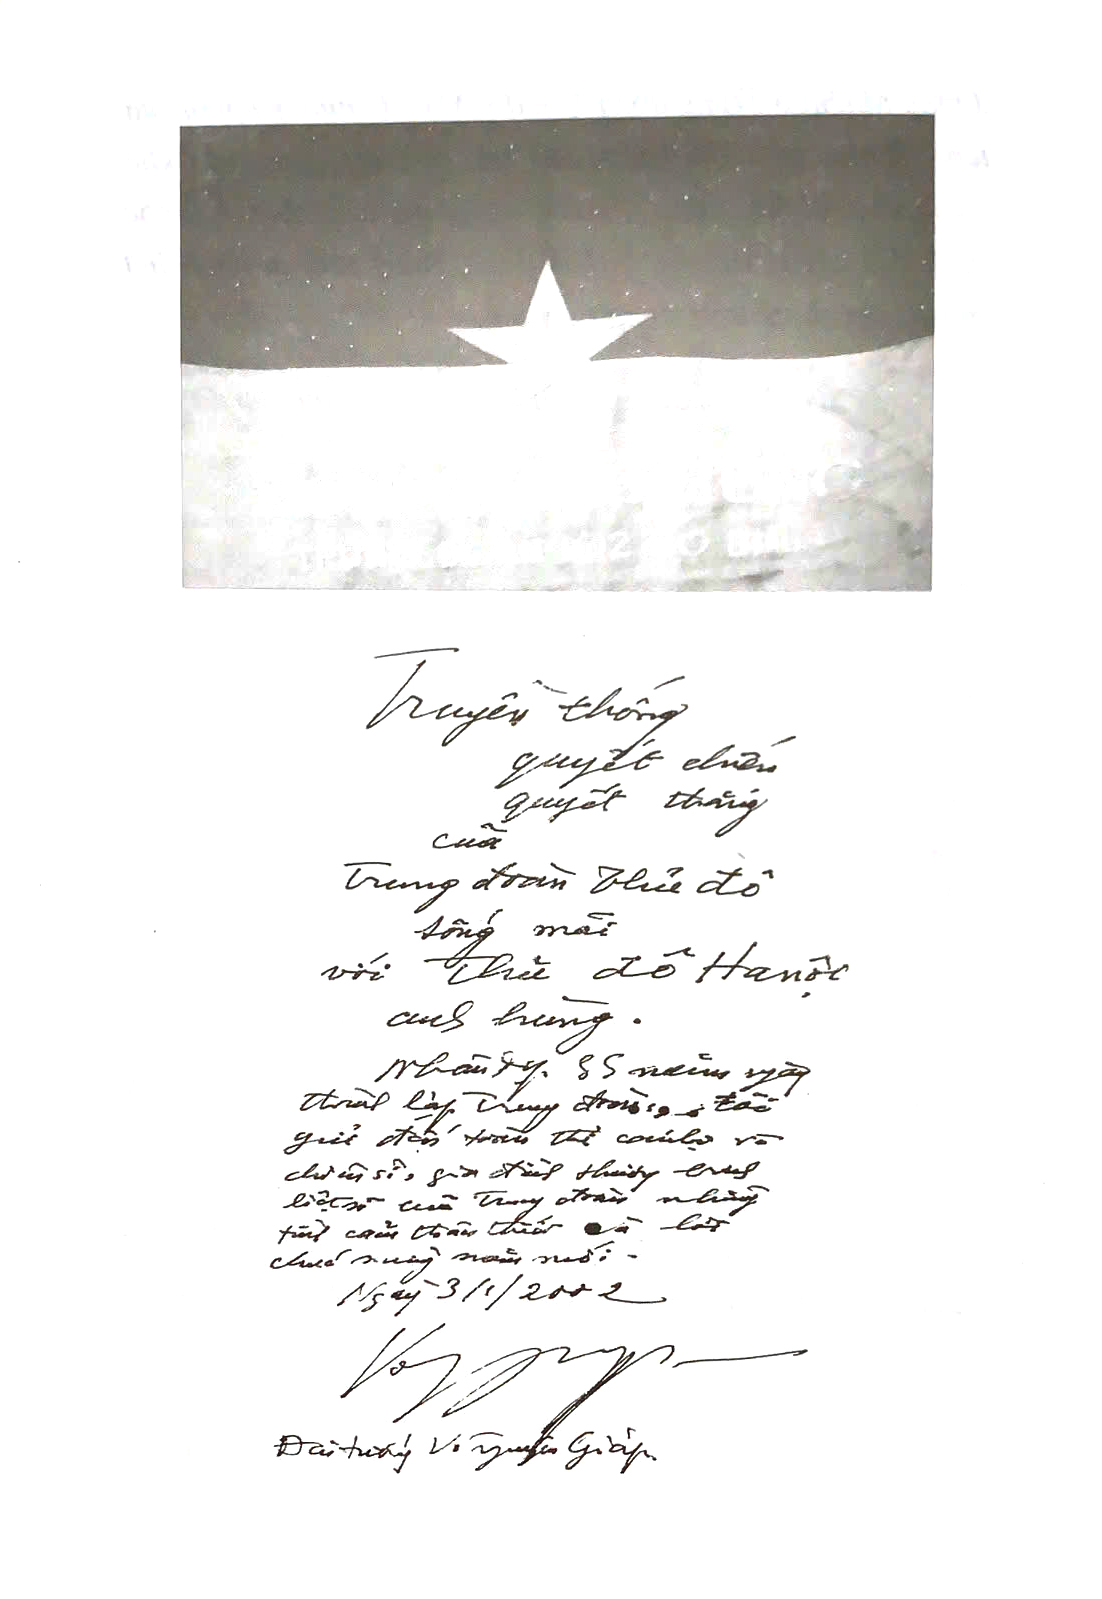 Truyền thống
quyết chiến
quyết thắng
của
Trung đoàn Thủ đô
sống mãi
với Thủ đô Hanội
anh hùng.
Nhân kỷ 55 năm ngày
thành lập Trung đoàn, tôi
gửi đến toàn thể cán bộ và
chiến sĩ, gia đình thương binh
liệt sĩ của Trung đoàn những
tình cảm thân thiết và lời
chúc mừng năm mới.
Ngày 3/1/2002
Đại tướng Võ Nguyên Giáp